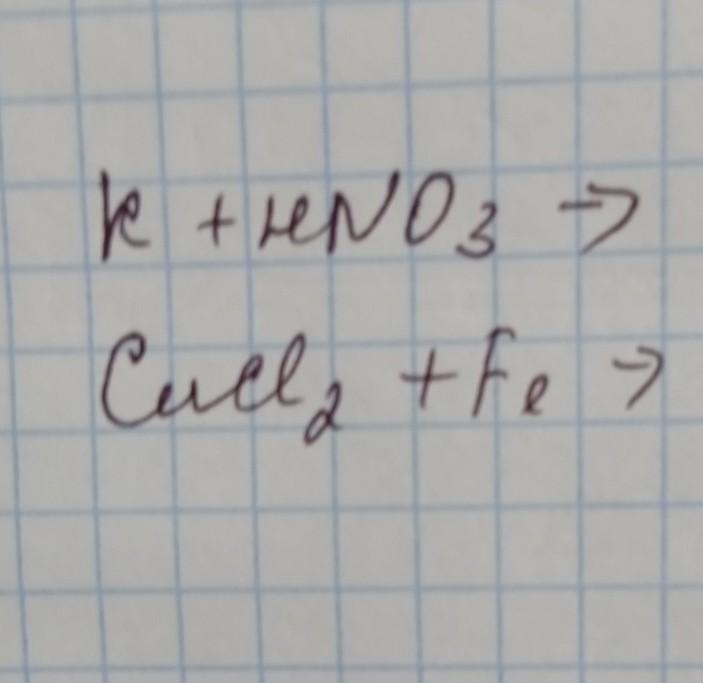 K + HNO3 →
CuCl2 + Fe →